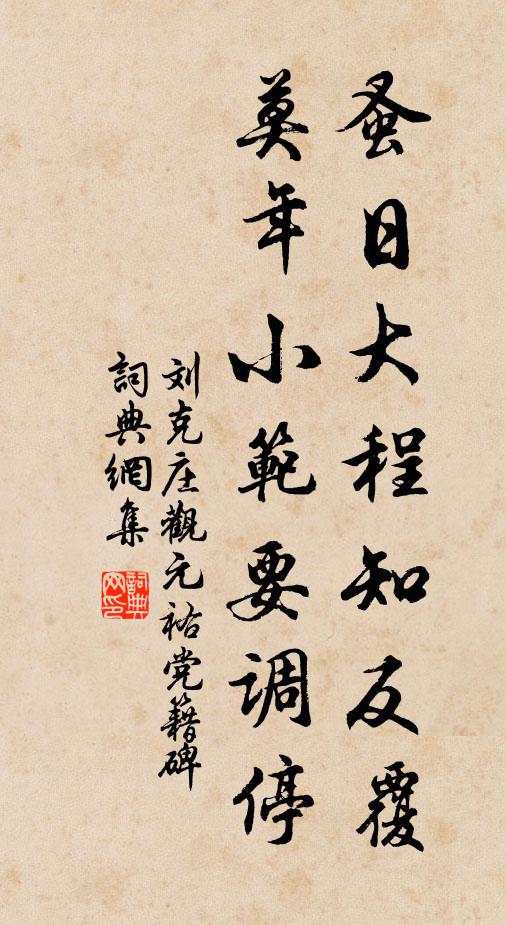 蚤日大程知反覆
莫年小範要調停
刘克庄觀元祐党籍碑
詞典網集
詞典
网印